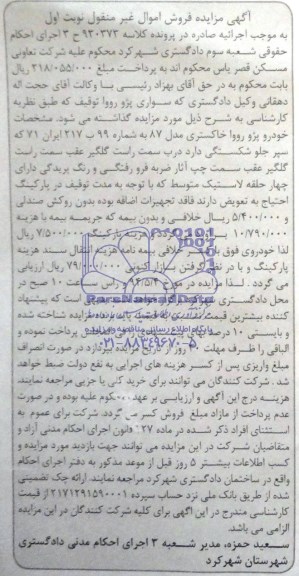 آگهی مزایده فروش اموال غیر منقول نوبت اول
به موجب اجرائیه صادره در پرونده کلاسه ۹۲۰۳۷۲ ح ۳ اجرای احکام
حقوقی شعبه سوم دادگستری شهرکرد محکوم علیه شرکت تعاونی
مسکن قصر یاس محکوم اند به پرداخت مبلغ ۲۱۸/۰۵۵/۰۰۰ ریال
بابت محکوم به در حق آقای بهزاد رئیسی با وکالت آقای حجت اله
دهقانی وکیل دادگستری که سواری پژو رووا توقیف که طبق نظریه
کارشناسی به شرح ذیل مورد مزایده گذاشته می شود. مشخصات
خودرو پژو رووا خاکستری مدل ۸۷ به شماره ۹۹ ب ۲۱۷ ایران ۷۱ که
سپر جلو شکستگی دارد درب سمت راست گلگیر عقب سمت راست
گلگیر عقب سمت چپ آثار ضربه فرو رفتگی و رنگ پریدگی دارای
چهار حلقه لاستیک متوسط که با توجه به مدت توقیف در پارکینگ
احتیاج به تعویض دارند فاقد تجهیزات اضافه بوده بدون روکش صندلی
و ۵/۴۰۰/۰۰۰ ریال خلافی و بدون بیمه که جریمه بیمه با هزینه
۱۰/۷۹۰/۰۰۰ هزینه پارکینگ ۷/۵۰۰/۰۰۰ ریال
لذا خودروی فوق با خلافی بیمه نامه هزینه انتقال سند هزینه
پارکینگ و با در نظر گرفتن بازار کنونی ۷۹/۰۰۰/۰۰۰ ریال ارزیابی
می گردد. لذا مزایده در مورخ ۹۴/۵/۴ راس ساعت ۱۰ صبح در
محل دادگستری است که پیشنهاد
کننده بیشترین قیمت برنده مزایده شناخته شده
و بایستی ۱۰ درصد پرداخت نموده و
الباقی را ظرف مهلت روز از تاریخ مزایده بپردازد در صورت انصراف
مبلغ واریزی پس از کسر هزینه های اجرایی به نفع دولت ضبط خواهد
شد. شرکت کنندگان می توانند برای خرید کلی یا جزیی مراجعه نمایند.
هزینه درج این آگهی و ارزیابی بر عهده محکوم علیه بوده و در صورت
عدم پرداخت از مازاد مبلغ فروش کسر می گردد. شرکت برای عموم به
استثنای افراد ذکر شده در ماده ۱۲۷ قانون اجرای احکام مدنی آزاد و
متقاضیان شرکت در این مزایده می توانند جهت بازدید مورد مزایده و
کسب اطلاعات بیشتر ۵ روز قبل از موعد مذکور به دفتر اجرای احکام
واقع در ساختمان دادگستری شهرکرد مراجعه نمایند. ارائه چک تضمینی
شده از طریق بانک ملی نزد حساب سپرده ۲۱۷۱۲۹۱۵۹۰۰۰۱ از قیمت
کارشناسی مندرج در این آگهی برای کلیه شرکت کنندگان در این مزایده
الزامی می باشد.
سعید حمزه، مدیر شعبه ۳ اجرای احکام مدنی دادگستری
شهرستان شهرکرد
ParsNamadData
پایگاه اطلاع رسانی مناقصه و مزایده
۰۲۱-۸۸۳۴۹۶۷۰-۵